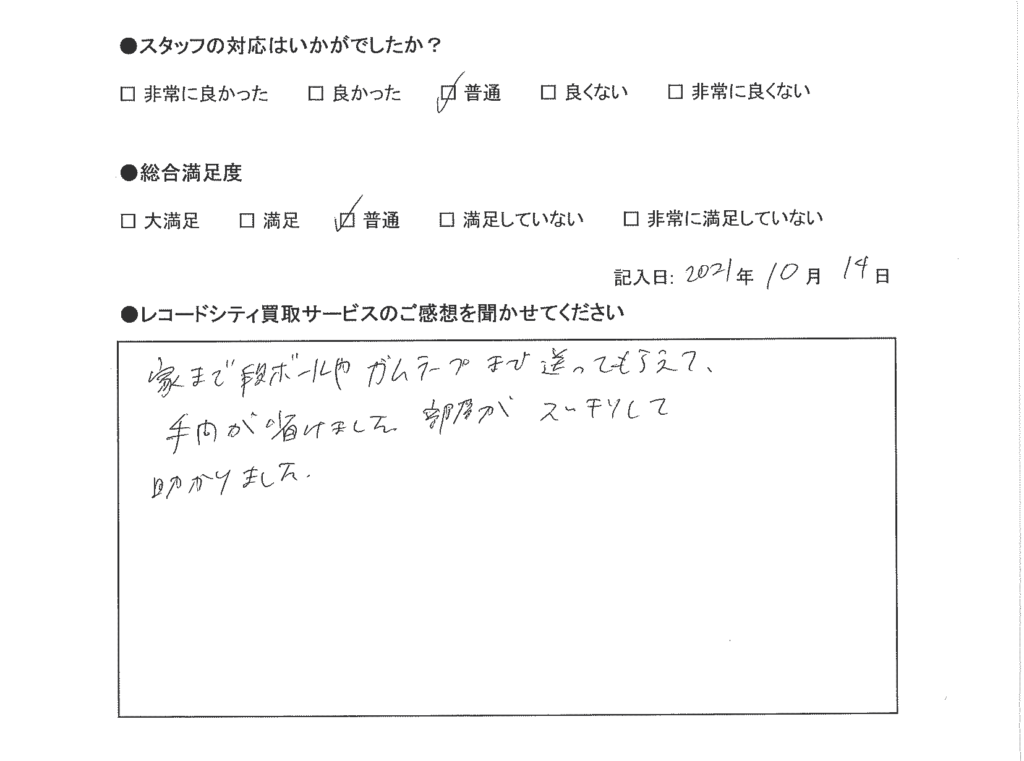 ●スタッフの対応はいかがでしたか？
□ 非常に良かった □ 良かった ☑ 普通 □ 良くない □ 非常に良くない
●総合満足度
□ 大満足 □ 満足 ☑ 普通 □ 満足していない □ 非常に満足していない
記入日: 2021年 10月 14日
●レコードシティ買取サービスのご感想を聞かせてください
家まで段ボールやガムテープまで送ってもらえて、
手間が省けました。部屋がスッキリして
助かりました.